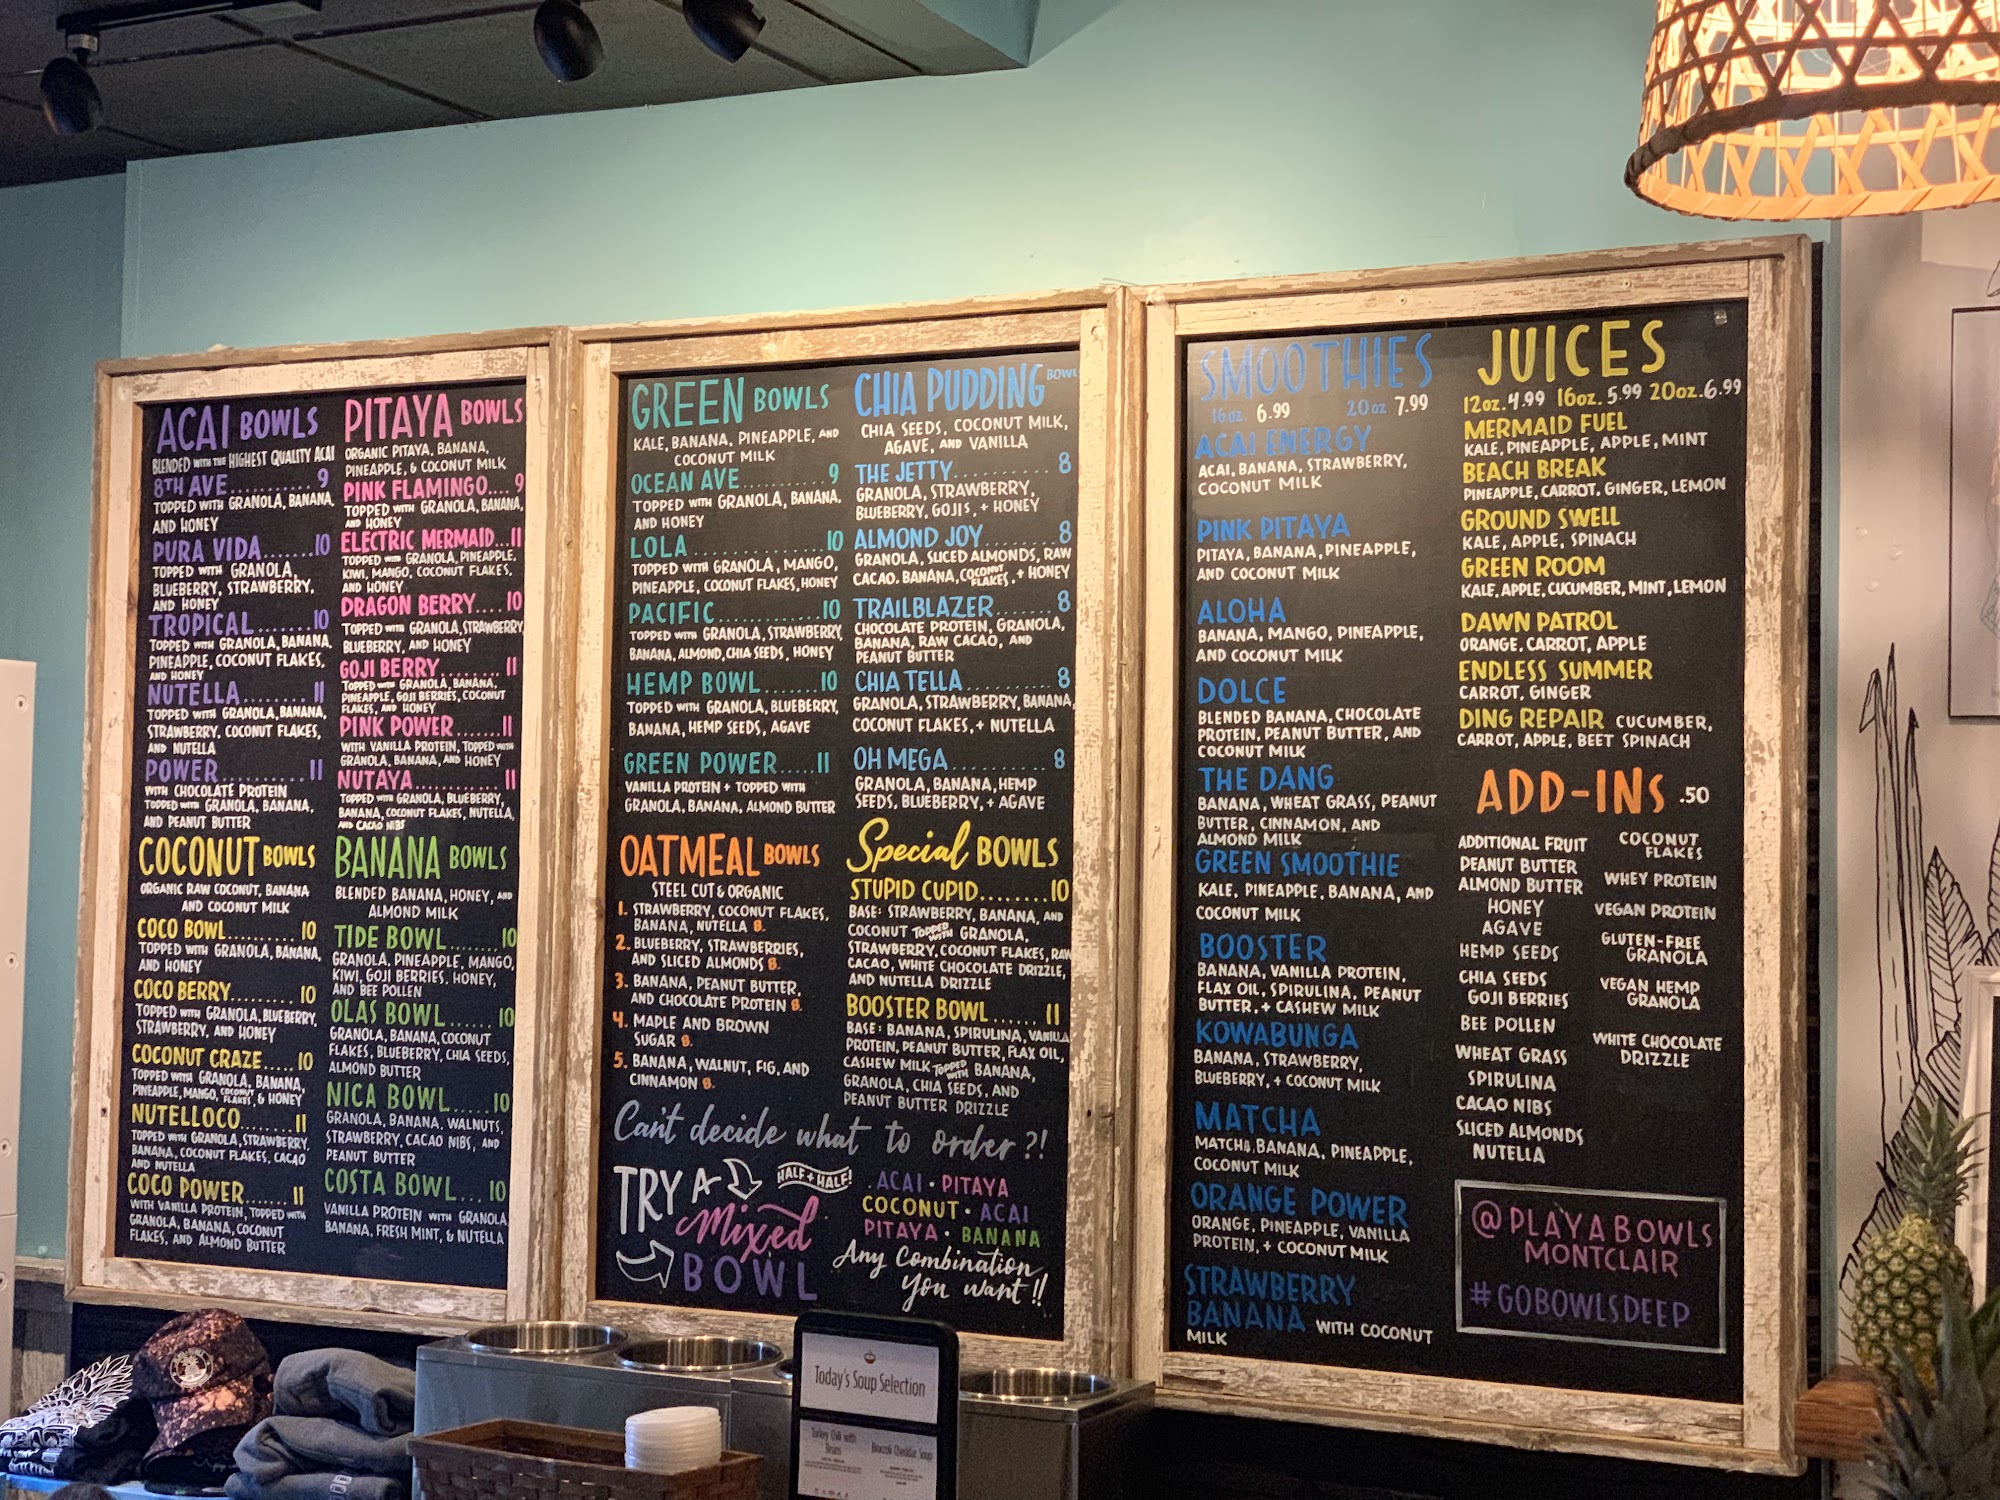 ACAI BOWLS
BLENDED WITH THE HIGHEST QUALITY ACAI
8TH AVE.......... 9
TOPPED WITH GRANOLA, BANANA,
AND HONEY
PURA VIDA.......10
TOPPED WITH GRANOLA,
BLUEBERRY, STRAWBERRY,
AND HONEY
TROPICAL.......10
TOPPED WITH GRANOLA, BANANA,
PINEAPPLE, COCONUT FLAKES,
AND HONEY
NUTELLA........11
TOPPED WITH GRANOLA, BANANA,
STRAWBERRY, COCONUT FLAKES,
AND NUTELLA
POWER..........11
WITH CHOCOLATE PROTEIN
TOPPED WITH GRANOLA, BANANA,
AND PEANUT BUTTER
COCONUT BOWLS
ORGANIC RAW COCONUT, BANANA
AND COCONUT MILK
COCO BOWL.......... 10
TOPPED WITH GRANOLA, BANANA,
AND HONEY
COCO BERRY......... 10
TOPPED WITH GRANOLA, BLUEBERRY,
STRAWBERRY, AND HONEY
COCONUT CRAZE.....10
TOPPED WITH GRANOLA, BANANA,
PINEAPPLE, MANGO, COCONUT FLAKES, & HONEY
NUTELLOCO........11
TOPPED WITH GRANOLA, STRAWBERRY,
BANANA, COCONUT FLAKES, CACAO
AND NUTELLA
COCO POWER.......11
WITH VANILLA PROTEIN, TOPPED WITH
GRANOLA, BANANA, COCONUT
FLAKES, AND ALMOND BUTTER
PITAYA BOWLS
ORGANIC PITAYA, BANANA,
PINEAPPLE, & COCONUT MILK
PINK FLAMINGO....9
TOPPED WITH GRANOLA, BANANA,
AND HONEY
ELECTRIC MERMAID...11
TOPPED WITH GRANOLA, PINEAPPLE,
KIWI, MANGO, COCONUT FLAKES,
AND HONEY
DRAGON BERRY....10
TOPPED WITH GRANOLA, STRAWBERRY,
BLUEBERRY, AND HONEY
GOJI BERRY........11
TOPPED WITH GRANOLA, BANANA,
PINEAPPLE, GOJI BERRIES, COCONUT
FLAKES, AND HONEY
PINK POWER.......11
WITH VANILLA PROTEIN, TOPPED WITH
GRANOLA, BANANA, AND HONEY
NUTAYA............11
TOPPED WITH GRANOLA, BLUEBERRY,
BANANA, COCONUT FLAKES, NUTELLA,
AND CACAO NIBS
BANANA BOWLS
BLENDED BANANA, HONEY, AND
ALMOND MILK
TIDE BOWL.......10
GRANOLA, PINEAPPLE, MANGO,
KIWI, GOJI BERRIES, HONEY,
AND BEE POLLEN
OLAS BOWL......10
GRANOLA, BANANA, COCONUT
FLAKES, BLUEBERRY, CHIA SEEDS,
ALMOND BUTTER
NICA BOWL.....10
GRANOLA, BANANA, WALNUTS,
STRAWBERRY, CACAO NIBS, AND
PEANUT BUTTER
COSTA BOWL...10
VANILLA PROTEIN WITH GRANOLA,
BANANA, FRESH MINT, & NUTELLA
GREEN BOWLS
KALE, BANANA, PINEAPPLE, AND
COCONUT MILK
OCEAN AVE.......... 9
TOPPED WITH GRANOLA, BANANA,
AND HONEY
LOLA............... 10
TOPPED WITH GRANOLA, MANGO,
PINEAPPLE, COCONUT FLAKES, HONEY
PACIFIC............10
TOPPED WITH GRANOLA, STRAWBERRY,
BANANA, ALMOND, CHIA SEEDS, HONEY
HEMP BOWL.......10
TOPPED WITH GRANOLA, BLUEBERRY,
BANANA, HEMP SEEDS, AGAVE
GREEN POWER.....11
VANILLA PROTEIN + TOPPED WITH
GRANOLA, BANANA, ALMOND BUTTER
OATMEAL BOWLS
STEEL CUT & ORGANIC
1. STRAWBERRY, COCONUT FLAKES,
BANANA, NUTELLA 8.
2. BLUEBERRY, STRAWBERRIES,
AND SLICED ALMONDS 8.
3. BANANA, PEANUT BUTTER,
AND CHOCOLATE PROTEIN 8.
4. MAPLE AND BROWN
SUGAR 8.
5. BANANA, WALNUT, FIG, AND
CINNAMON 8.
CHIA PUDDING BOWL
CHIA SEEDS, COCONUT MILK,
AGAVE, AND VANILLA
THE JETTY........... 8
GRANOLA, STRAWBERRY,
BLUEBERRY, GOJIS, + HONEY
ALMOND JOY........ 8
GRANOLA, SLICED ALMONDS, RAW
CACAO, BANANA, COCONUT FLAKES, + HONEY
TRAILBLAZER....... 8
CHOCOLATE PROTEIN, GRANOLA,
BANANA, RAW CACAO, AND
PEANUT BUTTER
CHIA TELLA.......... 8
GRANOLA, STRAWBERRY, BANANA,
COCONUT FLAKES, + NUTELLA
OH MEGA........... 8
GRANOLA, BANANA, HEMP
SEEDS, BLUEBERRY, + AGAVE
Special BOWLS
STUPID CUPID........10
BASE: STRAWBERRY, BANANA, AND
COCONUT TOPPED WITH GRANOLA,
STRAWBERRY, COCONUT FLAKES, RAW
CACAO, WHITE CHOCOLATE DRIZZLE,
AND NUTELLA DRIZZLE
BOOSTER BOWL...... 11
BASE: BANANA, SPIRULINA, VANILLA
PROTEIN, PEANUT BUTTER, FLAX OIL,
CASHEW MILK TOPPED WITH BANANA,
GRANOLA, CHIA SEEDS, AND
PEANUT BUTTER DRIZZLE
Can't decide what to order?!
TRY A
Mixed
BOWL
HALF + HALF!
ACAI • PITAYA
COCONUT • ACAI
PITAYA • BANANA
Any Combination
You want!!
SMOOTHIES
16oz. 6.99 20oz 7.99
ACAI ENERGY
ACAI, BANANA, STRAWBERRY,
COCONUT MILK
PINK PITAYA
PITAYA, BANANA, PINEAPPLE,
AND COCONUT MILK
ALOHA
BANANA, MANGO, PINEAPPLE,
AND COCONUT MILK
DOLCE
BLENDED BANANA, CHOCOLATE
PROTEIN, PEANUT BUTTER, AND
COCONUT MILK
THE DANG
BANANA, WHEAT GRASS, PEANUT
BUTTER, CINNAMON, AND
ALMOND MILK
GREEN SMOOTHIE
KALE, PINEAPPLE, BANANA, AND
COCONUT MILK
BOOSTER
BANANA, VANILLA PROTEIN,
FLAX OIL, SPIRULINA, PEANUT
BUTTER, + CASHEW MILK
KOWABUNGA
BANANA, STRAWBERRY,
BLUEBERRY, + COCONUT MILK
MATCHA
MATCHA, BANANA, PINEAPPLE,
COCONUT MILK
ORANGE POWER
ORANGE, PINEAPPLE, VANILLA
PROTEIN, + COCONUT MILK
STRAWBERRY
BANANA WITH COCONUT
MILK
JUICES
12oz. 4.99 16oz. 5.99 20oz. 6.99
MERMAID FUEL
KALE, PINEAPPLE, APPLE, MINT
BEACH BREAK
PINEAPPLE, CARROT, GINGER, LEMON
GROUND SWELL
KALE, APPLE, SPINACH
GREEN ROOM
KALE, APPLE, CUCUMBER, MINT, LEMON
DAWN PATROL
ORANGE, CARROT, APPLE
ENDLESS SUMMER
CARROT, GINGER
DING REPAIR CUCUMBER,
CARROT, APPLE, BEET SPINACH
ADD-INs .50
ADDITIONAL FRUIT
PEANUT BUTTER
ALMOND BUTTER
HONEY
AGAVE
HEMP SEEDS
CHIA SEEDS
GOJI BERRIES
BEE POLLEN
WHEAT GRASS
SPIRULINA
CACAO NIBS
SLICED ALMONDS
NUTELLA
COCONUT
FLAKES
WHEY PROTEIN
VEGAN PROTEIN
GLUTEN-FREE
GRANOLA
VEGAN HEMP
GRANOLA
WHITE CHOCOLATE
DRIZZLE
@PLAYABOWLS
MONTCLAIR
#GOBOWLSDEEP
Today's Soup Selection
Turkey Chili with
Beans
Broccoli Cheddar Soup